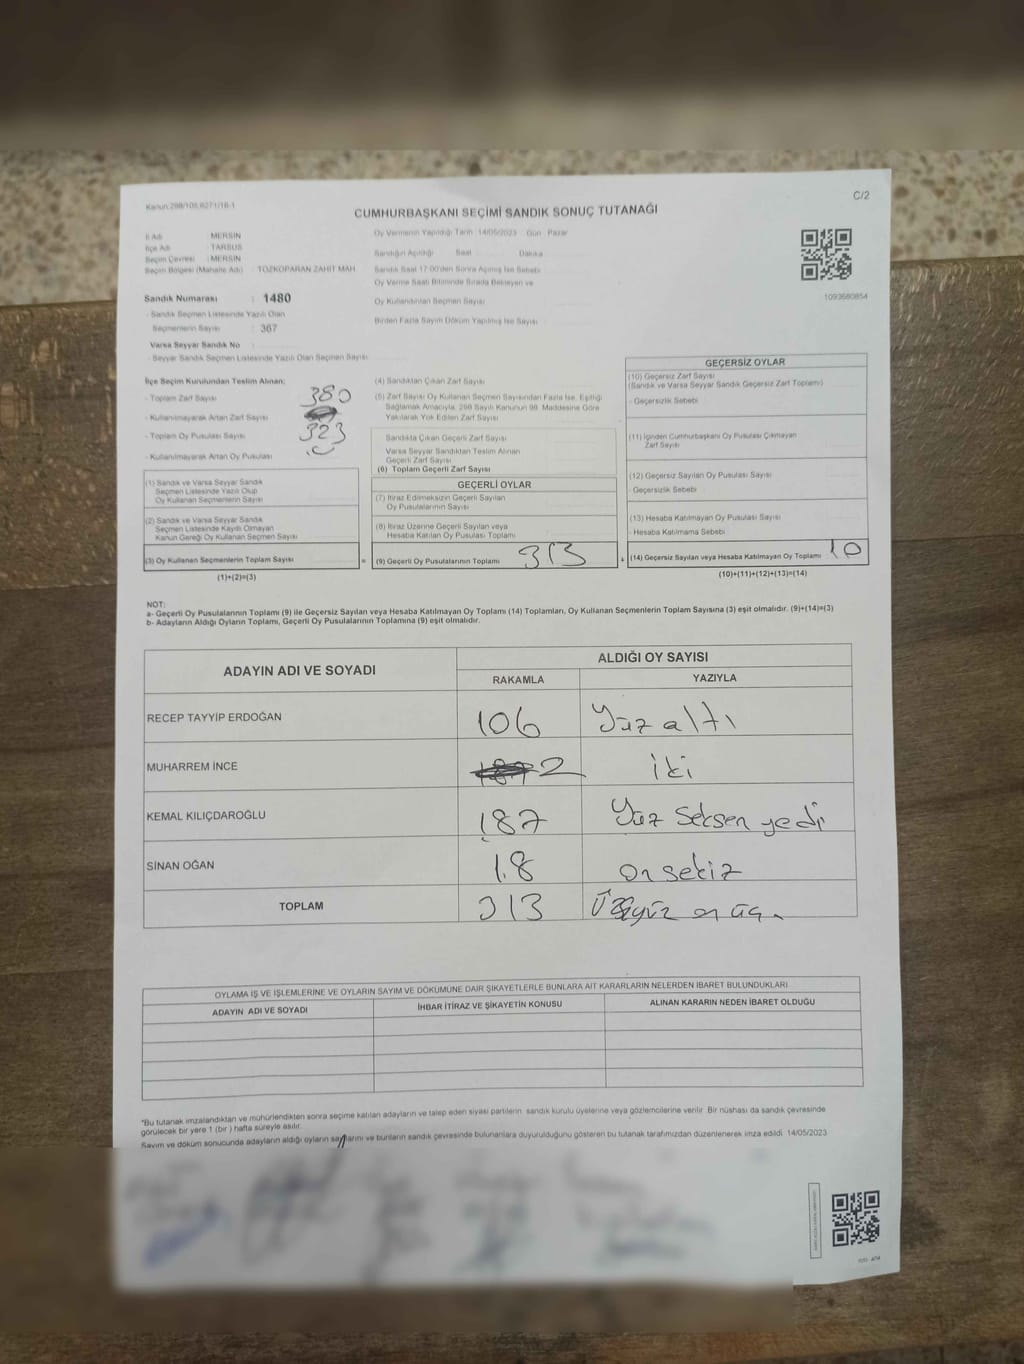 Kanun:298/105,6271/16-1
C/2
CUMHURBAŞKANI SEÇİMİ SANDIK SONUÇ TUTANAĞI
İl Adı : MERSİN
İlçe Adı : TARSUS
Seçim Çevresi : MERSİN
Seçim Bölgesi (Mahalle Adı) : TOZKOPARAN ZAHİT MAH.
Sandık Numarası : 1480
- Sandık Seçmen Listesinde Yazılı Olan
Seçmenlerin Sayısı : 367
Varsa Seyyar Sandık No :
- Seyyar Sandık Seçmen Listesinde Yazılı Olan Seçmen Sayısı
Oy Vermenin Yapıldığı Tarih :14/05/2023 Gün Pazar
Sandığın Açıldığı Saat Dakika
Sandık Saat 17:00'den Sonra Açılmış İse Sebebi
Oy Verme Saati Bitiminde Sırada Bekleyen ve
Oy Kullandırılan Seçmen Sayısı
Birden Fazla Sayım Döküm Yapılmış İse Sayısı
1093680854
İlçe Seçim Kurulundan Teslim Alınan;
- Toplam Zarf Sayısı 380
- Kullanılmayarak Artan Zarf Sayısı
- Toplam Oy Pusulası Sayısı 323
- Kullanılmayarak Artan Oy Pusulası
(1) Sandık ve Varsa Seyyar Sandık
Seçmen Listesinde Yazılı Olup
Oy Kullanan Seçmenlerin Sayısı
(2) Sandık ve Varsa Seyyar Sandık
Seçmen Listesinde Kaydı Olmayan
Kanun Gereği Oy Kullanan Seçmen Sayısı
(3) Oy Kullanan Seçmenlerin Toplam Sayısı =
(1)+(2)=(3)
(4) Sandıktan Çıkan Zarf Sayısı
(5) Zarf Sayısı Oy Kullanan Seçmen Sayısından Fazla İse, Eşitliği
Sağlamak Amacıyla; 298 Sayılı Kanunun 98. Maddesine Göre
Yakılarak Yok Edilen Zarf Sayısı
Sandıkta Çıkan Geçerli Zarf Sayısı
Varsa Seyyar Sandıktan Teslim Alınan
Geçerli Zarf Sayısı
(6) Toplam Geçerli Zarf Sayısı
GEÇERLİ OYLAR
(7) İtiraz Edilmeksizin Geçerli Sayılan
Oy Pusulalarının Sayısı
(8) İtiraz Üzerine Geçerli Sayılan veya
Hesaba Katılan Oy Pusulası Toplamı
(9) Geçerli Oy Pusulalarının Toplamı 313 +
GEÇERSİZ OYLAR
(10) Geçersiz Zarf Sayısı
(Sandık ve Varsa Seyyar Sandık Geçersiz Zarf Toplamı)
- Geçersizlik Sebebi
(11) İçinden Cumhurbaşkanı Oy Pusulası Çıkmayan
Zarf Sayısı
(12) Geçersiz Sayılan Oy Pusulası Sayısı
- Geçersizlik Sebebi
(13) Hesaba Katılmayan Oy Pusulası Sayısı
- Hesaba Katılmama Sebebi
(14) Geçersiz Sayılan veya Hesaba Katılmayan Oy Toplamı 10
(10)+(11)+(12)+(13)=(14)
NOT:
a- Geçerli Oy Pusulalarının Toplamı (9) ile Geçersiz Sayılan veya Hesaba Katılmayan Oy Toplamı (14) Toplamları, Oy Kullanan Seçmenlerin Toplam Sayısına (3) eşit olmalıdır. (9)+(14)=(3)
b- Adayların Aldığı Oyların Toplamı, Geçerli Oy Pusulalarının Toplamına (9) eşit olmalıdır.
ADAYIN ADI VE SOYADI
ALDIĞI OY SAYISI
RAKAMLA YAZIYLA
RECEP TAYYİP ERDOĞAN 106 Yüz altı
MUHARREM İNCE 2 iki
KEMAL KILIÇDAROĞLU 187 Yüz Seksen yedi
SİNAN OĞAN 18 on sekiz
TOPLAM 313 Üçyüz on üç
OYLAMA İŞ VE İŞLEMLERİNE VE OYLARIN SAYIM VE DÖKÜMÜNE DAİR ŞİKAYETLERLE BUNLARA AİT KARARLARIN NELERDEN İBARET BULUNDUKLARI
ADAYIN ADI VE SOYADI İHBAR İTİRAZ VE ŞİKAYETİN KONUSU ALINAN KARARIN NEDEN İBARET OLDUĞU
*Bu tutanak imzalandıktan ve mühürlendikten sonra seçime katılan adayların ve talep eden siyasi partilerin sandık kurulu üyelerine veya gözlemcilerine verilir. Bir nüshası da sandık çevresinde
görülecek bir yere 1 (bir) hafta süreyle asılır.
Sayım ve döküm sonucunda adayların aldığı oyların sayılarını ve bunların sandık çevresinde bulunanlara duyurulduğunu gösteren bu tutanak tarafımızdan düzenlenerek imza edildi. 14/05/2023